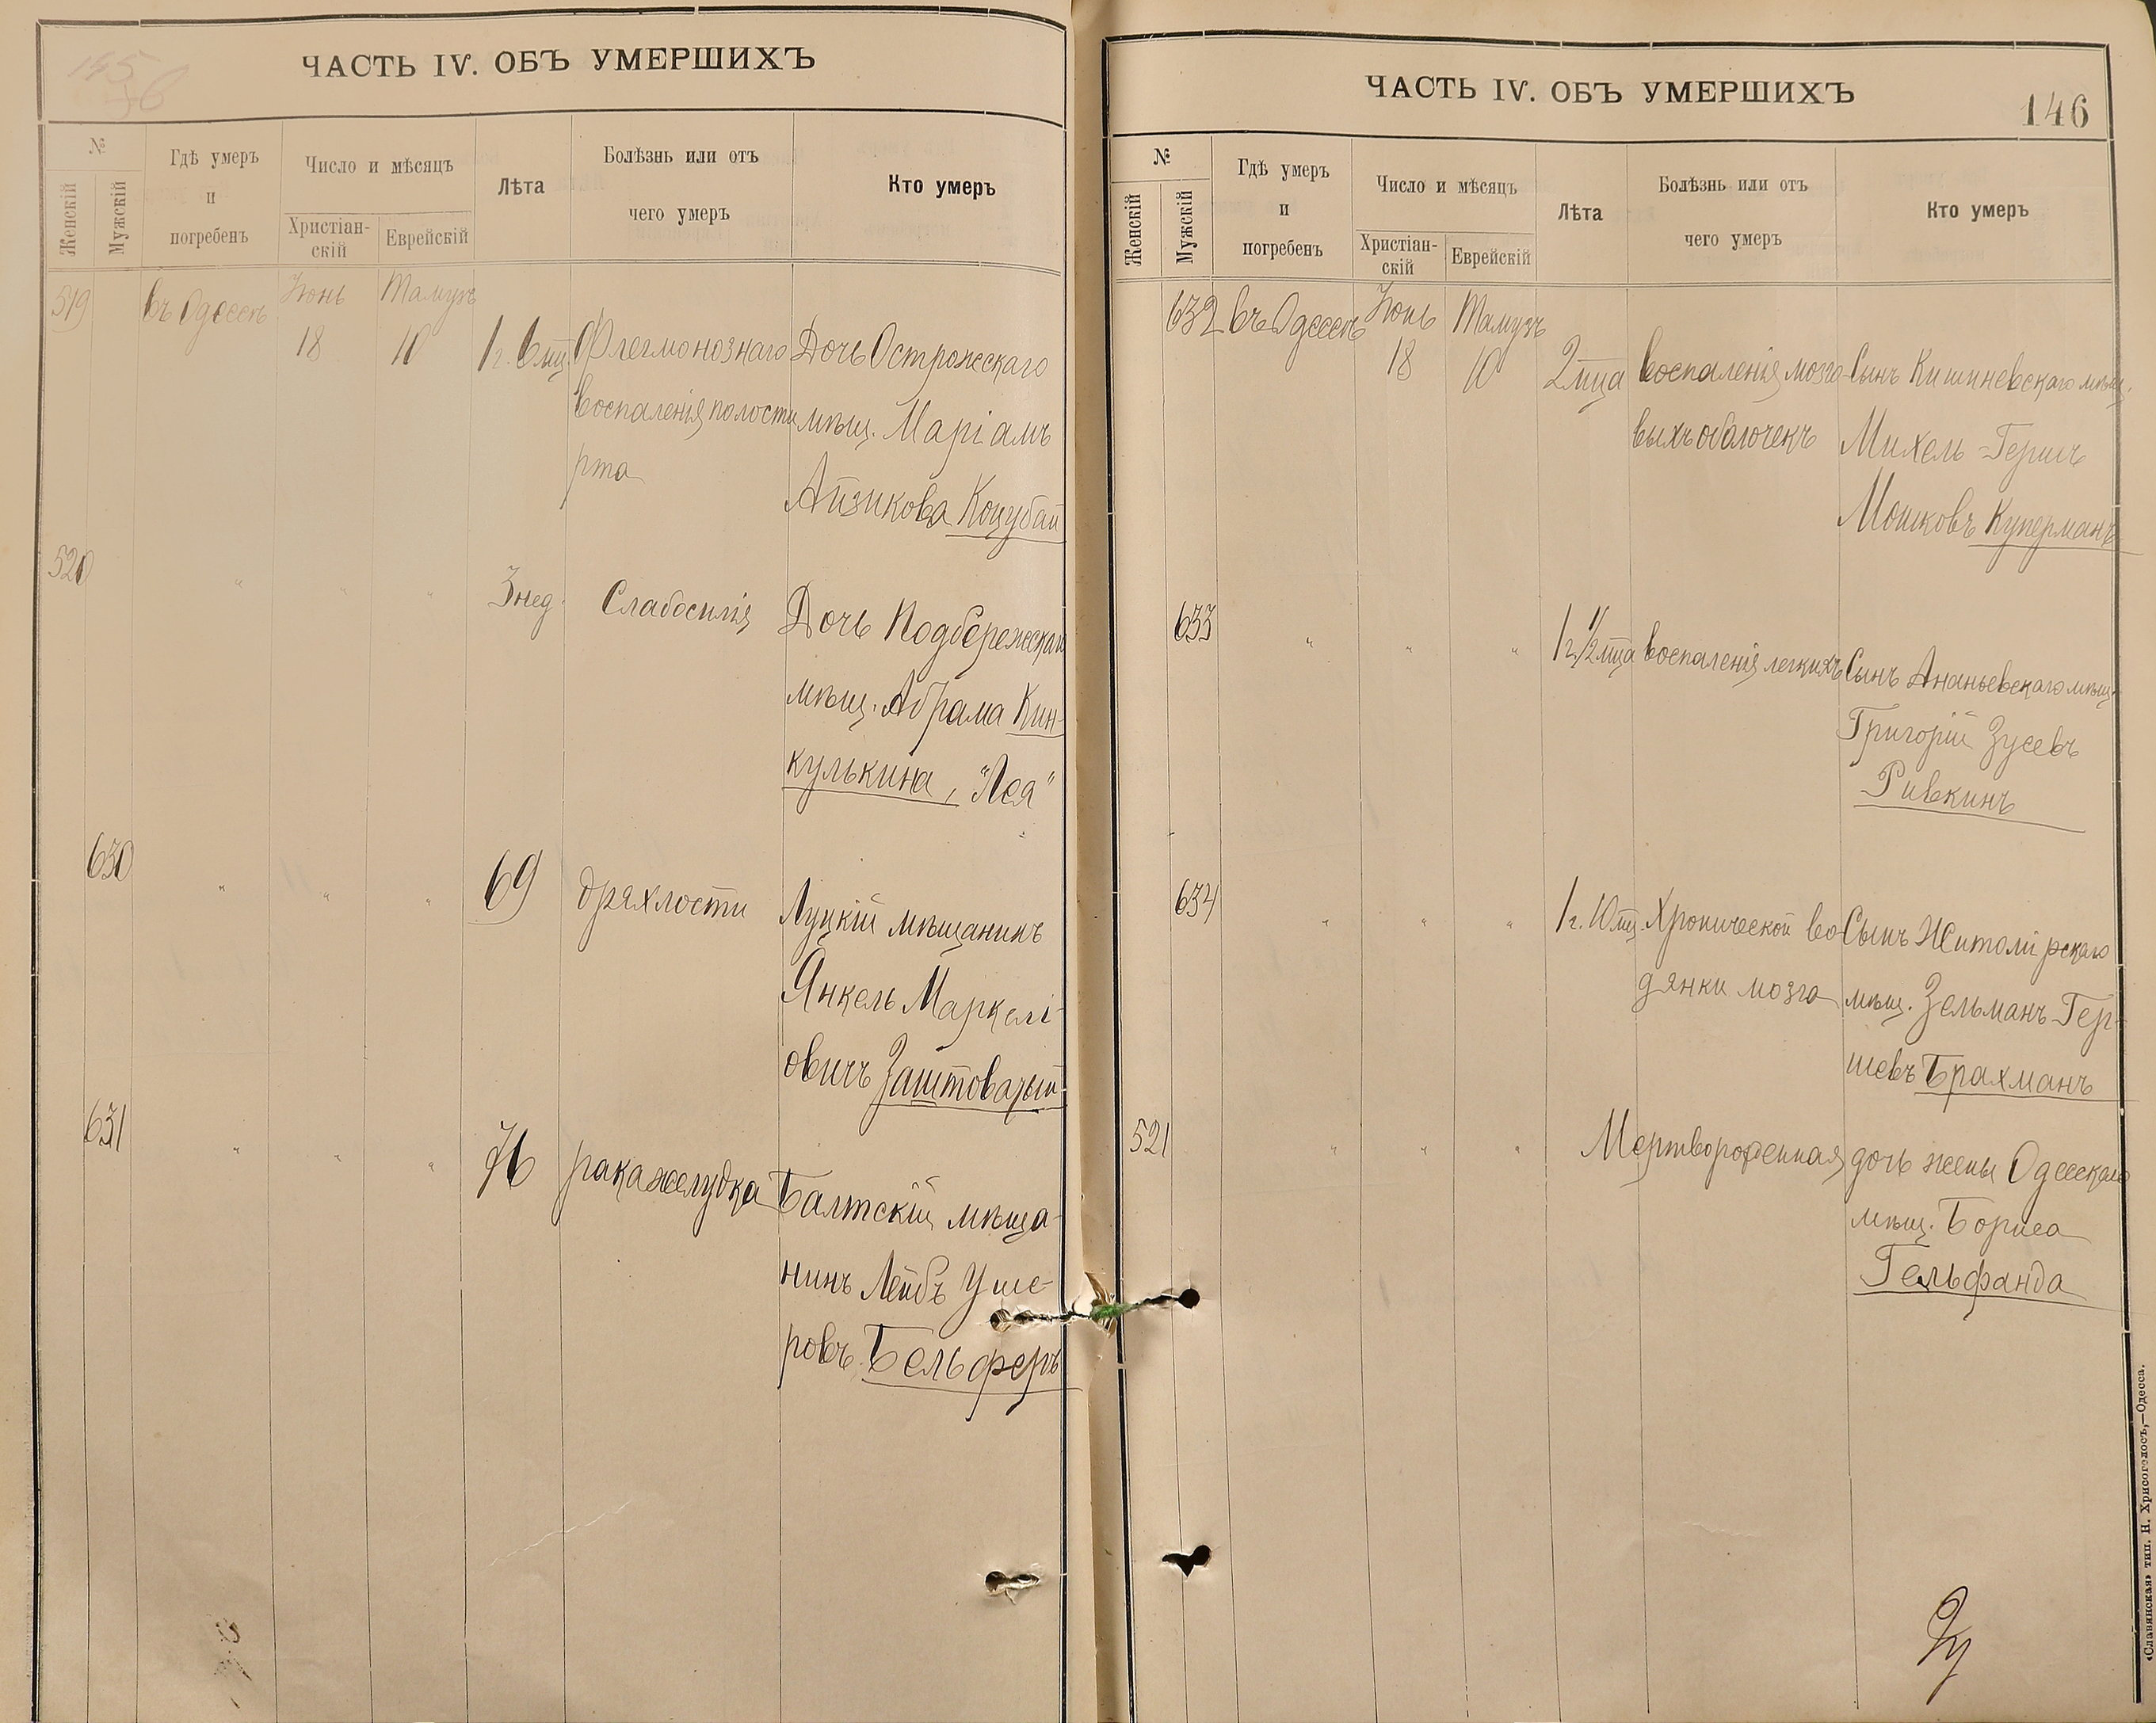 ЧАСТЬ IV. ОБЪ УМЕРШИХЪ
№
Женскій
Мужскій
Гдѣ умеръ
и
погребенъ
Число и мѣсяцъ
Христіан-
скій
Еврейскій
Лѣта
Болѣзнь или отъ
чего умеръ
Кто умеръ
519 въ Одессѣ Іюнь Тамузъ
18 10 1 г. 6 мц. Флегмонознаго Дочь Острожскаго
воспаленія полости мѣщ. Маріамъ
рта Айзикова Коцубай
520 " " " 3 нед. Слабосилія Дочь Подбережскаго
мѣщ. Абрама Кин-
кулькина, "Лея"
630 " " " 69 дряхлости Луцкій мѣщанинъ
Янкель Маркелі-
овичъ Заштоварый
631 " " " 76 рака желудка Балтскій мѣща-
нинъ Лейбъ Уше-
ровъ Бельферъ
ЧАСТЬ IV. ОБЪ УМЕРШИХЪ
146
№
Женскій
Мужскій
Гдѣ умеръ
и
погребенъ
Число и мѣсяцъ
Христіан-
скій
Еврейскій
Лѣта
Болѣзнь или отъ
чего умеръ
Кто умеръ
632 въ Одессѣ Іюнь Тамузъ
18 10 2 мца воспаленія мозго- Сынъ Кишиневскаго мѣщ.
выхъ оболочекъ Михель-Гершъ
Мошковъ Куперманъ
633 " " " 1 г. 1/2 мца воспаленія легкихъ Сынъ Ананьевскаго мѣщ.
Григорій Зусевъ
Ривкинъ
634 " " " 1 г. 10 мц. Хронической во- Сынъ Житомірскаго
дянки мозга мѣщ. Зельманъ Гер-
шевъ Брахманъ
521 " " " Мертворожденная дочь жены Одесскаго
мѣщ. Бориса
Гельфанда
«Славянская» тип. Н. Хрисогелосъ,—Одесса.